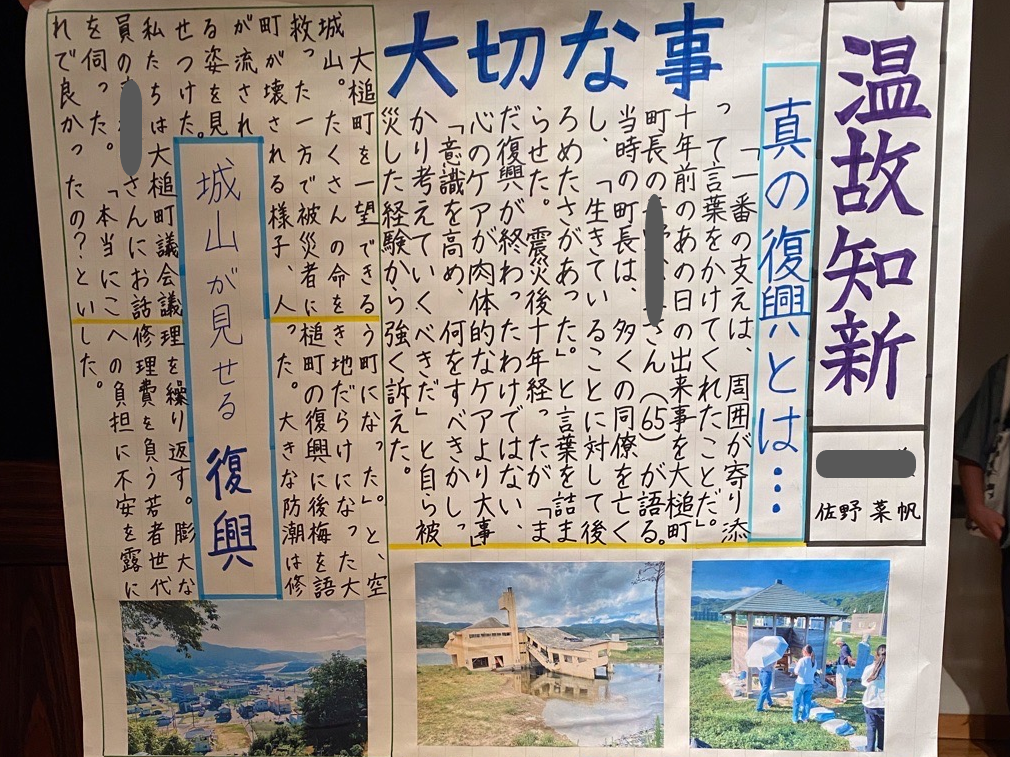 温故知新
佐野菜帆
真の復興とは…
大切な事
「一番の支えは、周囲が寄り添
って言葉をかけてくれたことだ。」
十年前のあの日の出来事を大槌町
町長のさん（65）が語る。
当時の町長は、多くの同僚を亡く
し、「生きていることに対して後
ろめたさがあった」と言葉を詰ま
らせた。震災後十年経ったが「ま
だ復興が終わったわけではない、
心のケアが肉体的なケアより大事」
「意識を高め、何をすべきかしっ
かり考えていくべきだ」と自ら被
災した経験から強く訴えた。
城山が見せる復興
大槌町を一望できる
城山。たくさんの命を
救った一方で被災者に
町が壊される様子、人
が流され
る姿を見
せつけた。
私たちは大槌町議会議
員のさんにお話
を伺った。「本当にこ
れで良かったの？とい
う町になった」。と、空
き地だらけになった大
槌町の復興に後梅を語
った。大きな防潮は修
理を繰り返す。膨大な
修理費を負う若者世代
への負担に不安を露に
した。